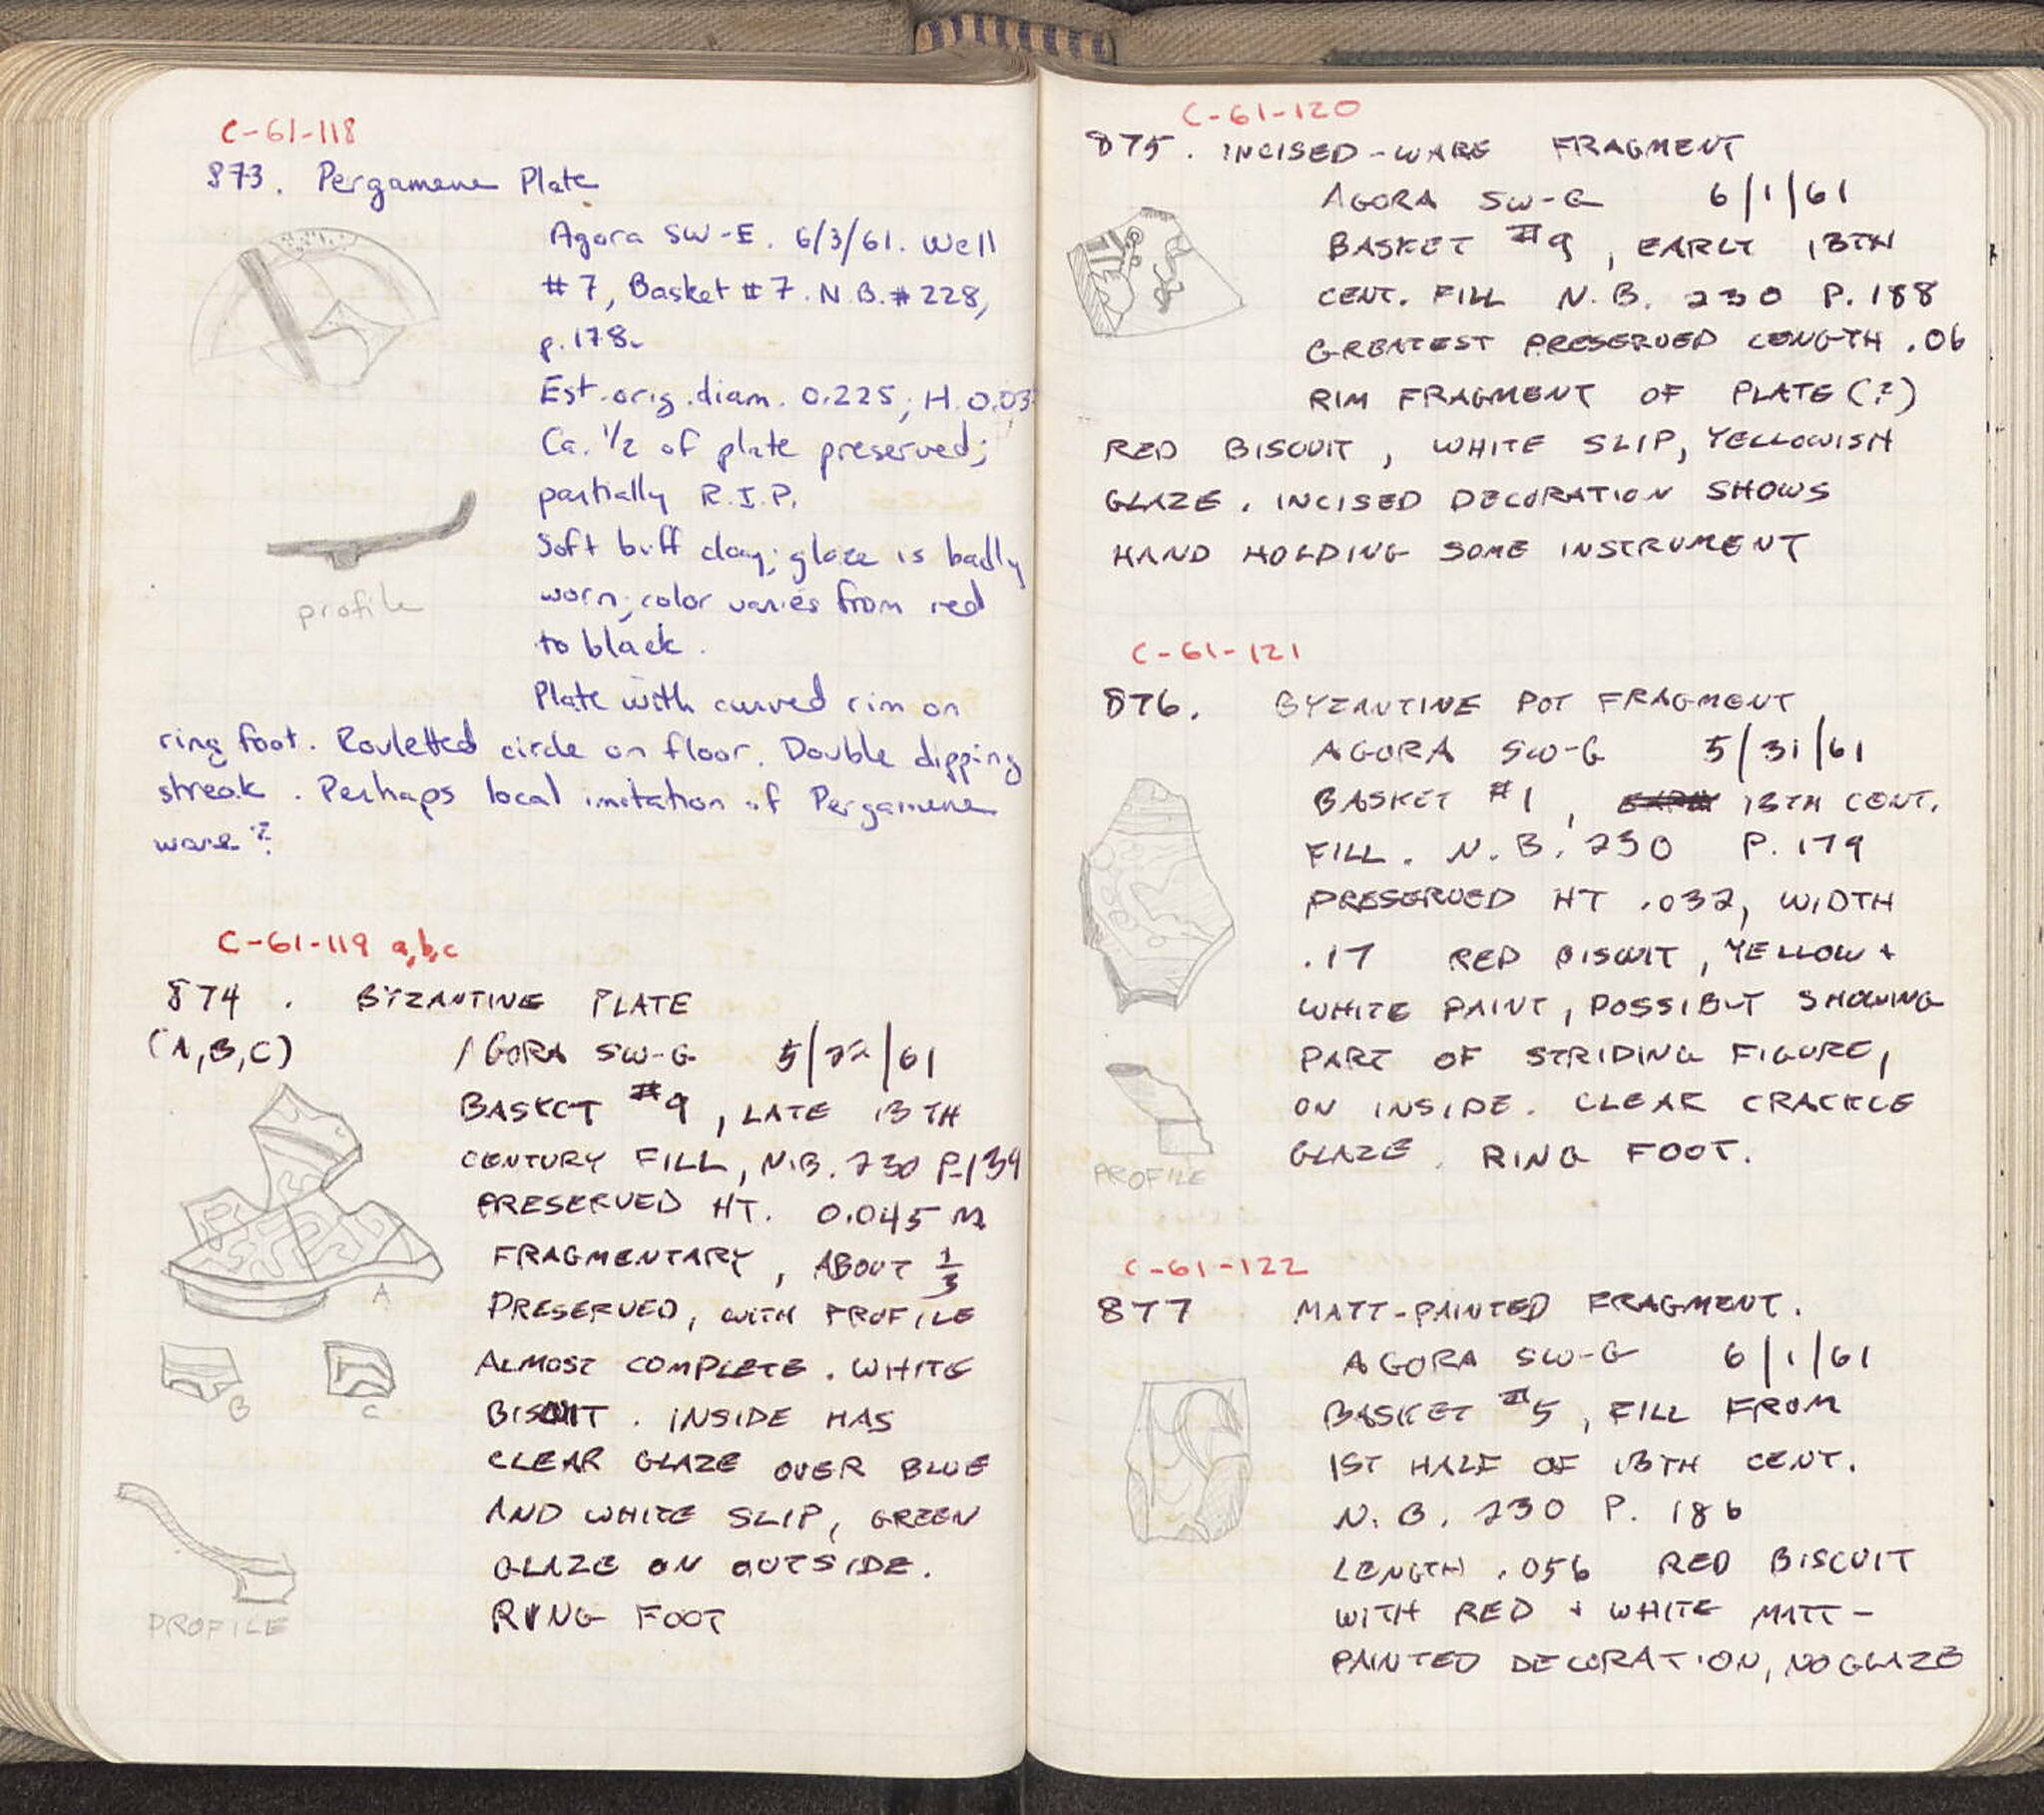 C-61-118
873. Pergamene Plate
Agora SW-E. 6/3/61. Well
#7, Basket #7. N.B. #228,
p.178.
Est. orig. diam. 0.225; H. 0.03
Ca. 1/2 of plate preserved;
partially R.I.P.
Soft buff clay; glaze is badly
worn; color varies from red
to black.
profile
Plate with curved rim on
ring foot. Rouletted circle on floor. Double dipping
streak. Perhaps local imitation of Pergamene
ware?
C-61-119 a,b,c
874. BYZANTINE PLATE
(A,B,C) AGORA SW-G 5/22/61
BASKET #9, LATE 13TH
CENTURY FILL, N.B. 230 P.139
PRESERVED HT. 0.045 M
FRAGMENTARY, ABOUT 1/3
A
PRESERVED, WITH PROFILE
ALMOST COMPLETE. WHITE
B C
BISCUIT. INSIDE HAS
CLEAR GLAZE OVER BLUE
AND WHITE SLIP, GREEN
GLAZE ON OUTSIDE.
RING FOOT
PROFILE
C-61-120
875. INCISED-WARE FRAGMENT
AGORA SW-G 6/1/61
BASKET #9, EARLY 13TH
CENT. FILL N.B. 230 P. 188
GREATEST PRESERVED LENGTH .06
RIM FRAGMENT OF PLATE(?)
RED BISCUIT, WHITE SLIP, YELLOWISH
GLAZE. INCISED DECORATION SHOWS
HAND HOLDING SOME INSTRUMENT
C-61-121
876. BYZANTINE POT FRAGMENT
AGORA SW-G 5/31/61
BASKET #1, 13TH CENT.
FILL. N.B. 230 P. 179
PRESERVED HT .032, WIDTH
.17 RED BISCUIT, YELLOW +
WHITE PAINT, POSSIBLY SHOWING
PART OF STRIDING FIGURE,
ON INSIDE. CLEAR CRACKLE
GLAZE. RING FOOT.
PROFILE
C-61-122
877 MATT-PAINTED FRAGMENT.
AGORA SW-G 6/1/61
BASKET #5, FILL FROM
1ST HALF OF 13TH CENT.
N.B. 230 P. 186
LENGTH .056 RED BISCUIT
WITH RED + WHITE MATT-
PAINTED DECORATION, NO GLAZE